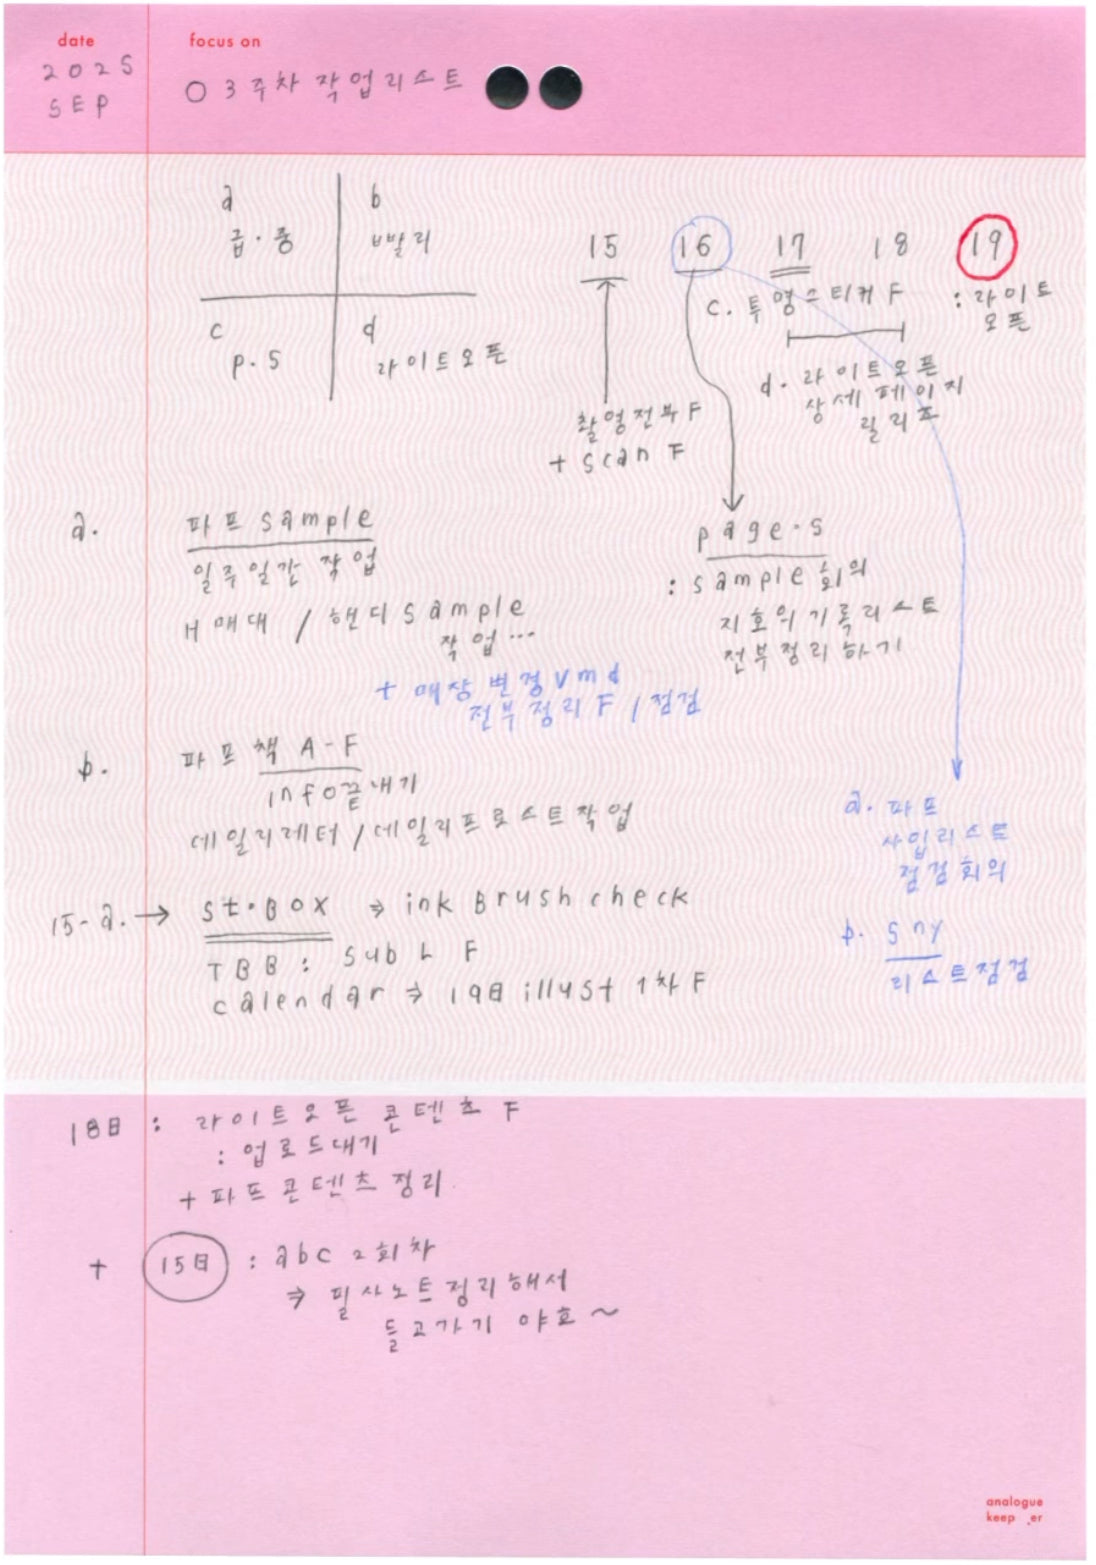 date
2025
SEP
focus on
○ 3주차 작업리스트
a
급·중
b
빨리
c
p.s
d
라이트오픈
15 16 17 18 19
c. 투명스티커 F
: 라이트
오픈
d. 라이트오픈
상세페이지
릴리즈
촬영전부 F
+ scan F
page.s
: sample 회의
지호의기록리스트
전부정리하기
a. 파프 sample
일주일간 작업
H매대 / 핸디 sample
작업...
+ 매장변경 vmd
전부정리 F / 점검
b. 파프 책 A-F
info끝내기
데일리레터 / 데일리프로스트작업
a. 파프
사입리스트
점검회의
b. sny
리스트점검
15-a. → St.BOX ⇒ ink Brush check
TBB : sub L F
calendar ⇒ 19日 illust 1차 F
18日 : 라이트오픈 콘텐츠 F
: 업로드내기
+ 파프콘텐츠정리.
+ 15日 : abc 2회차
⇒ 필사노트정리해서
들고가기 야호~
analogue
keep_er